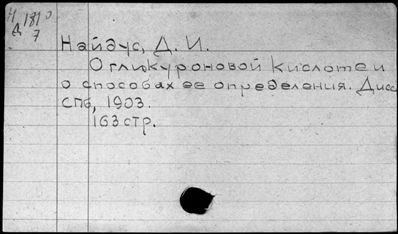 Н 181
Д 7
Найдус, Д. И.
О гликуроновой кислоте и
о способах ее определения. Дисс
спб, 1903.
163 стр.